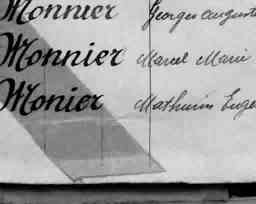 Monnier Georges Auguste
Monnier Marcel Marie
Monier Mathurin Euge